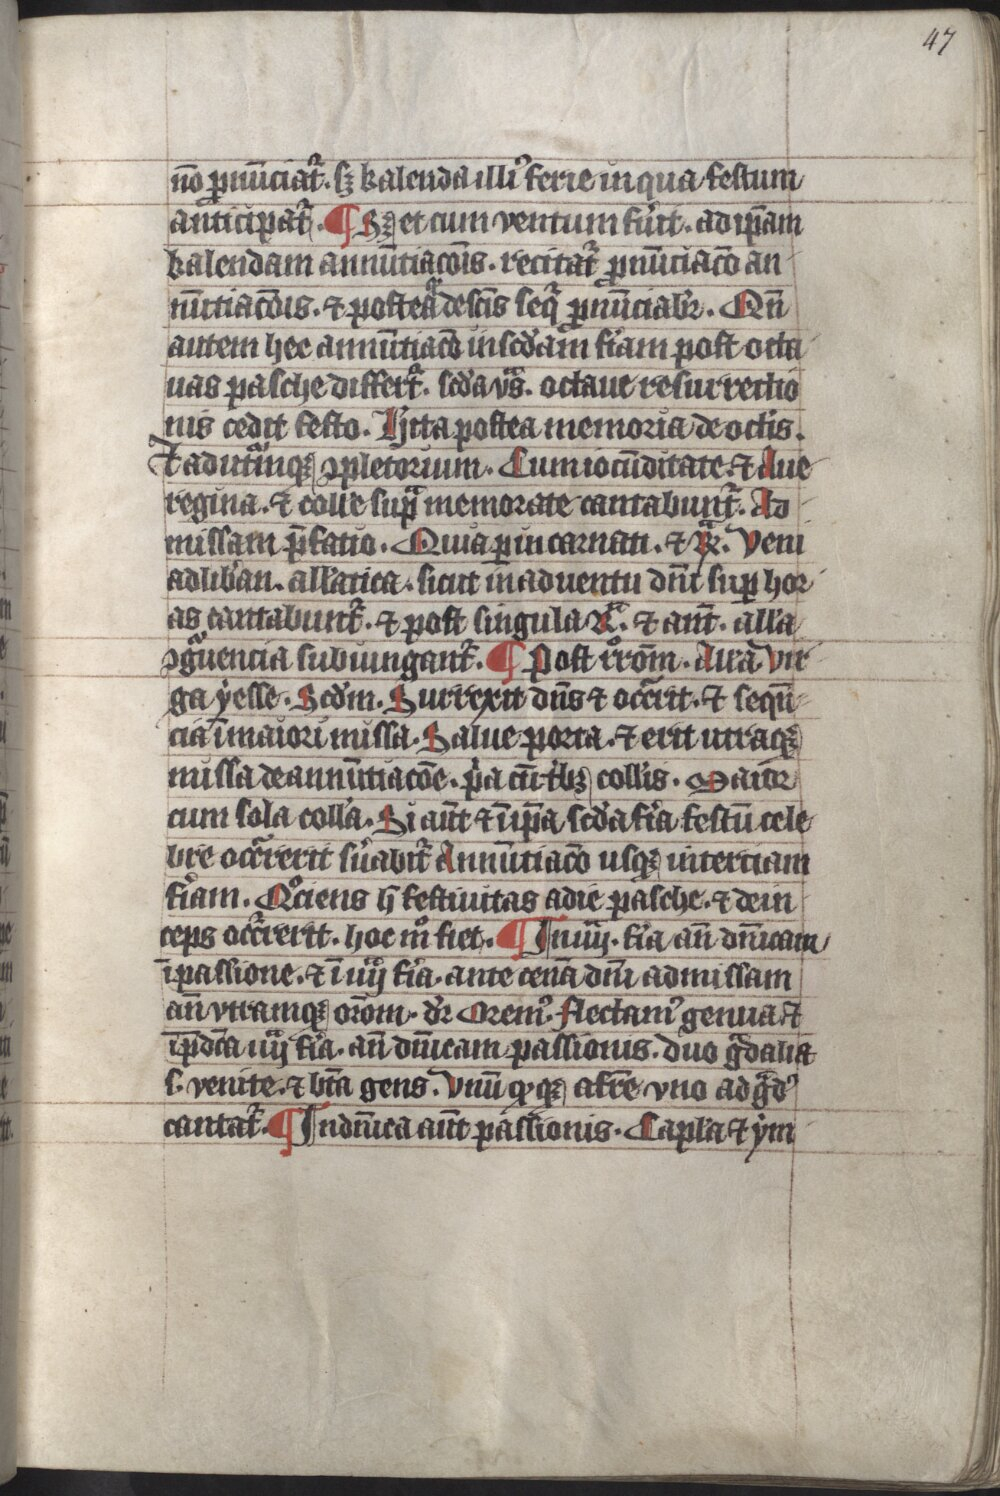 47
no᷑ ꝓnūciat᷑. sꝫ kalenda illiꝰ ferie in qua festum
anticipat᷑. ¶ Sꝫ et cum ventum fūit. ad ip̄am
kalendam annūtiac̄ōis. recitat᷑ ꝓnūciac̄o an
nūtiac̄ōis. ⁊ postea descīs seq̄ ꝓnūciabr̄. Qn̄
autem hec annūtiac̄o in scd̄am fīam post octa
uas pasche differt᷑. scd̄a vs̄. octaue resurrectio
nis cedit festo. Hīta postea memoria de octīs.
Et ad utrūqꝫ ꝯpletorium. Cum iocūditate. ⁊ Aue
regina. ⁊ colle᷑ supͣ memorate cantabunt᷑. Ad
missam p̄fatio. Quia ꝑ incarnati. ⁊ ℟. Veni
ad lib̄an. all̄atica. sicut in aduentu dn̄i sup̄ hor
as cantabunt᷑. ⁊ post singula ℟. ⁊ an̄t. all̄a
ꝯgͣuencia subiungant᷑. ¶ Post r̄rōm. Alta vir
ga yesse. Scd̄m. Surrexit dn̄s ⁊ occ̄rit. ⁊ sequē
cia ī maiori missa. Salue porta. ⁊ erit utraqꝫ
missa de annūtiac̄ōe. p̄a cū tb̄ꝫ coll̄is. Maior
cum sola coll̄a. Si aūt ⁊ ī ip̄a scd̄a fīa festū cele
bre occ̄rerit sūabit᷑ Annūtiac̄o usqꝫ in tertiam
fīam. Qͦciens h̄ festiuitas a die pasche. ⁊ dein
ceps occ̄rerit. hoc mͦ fiet. ¶ In iiij. fīa an̄ dn̄icam
ī passione. ⁊ ī iiij fīa. ante cenā dn̄i ad missam
an̄ vtramqꝫ or̄om. dr̄ Oremꝰ. Flectamꝰ genua. ⁊
ī p̄dc̄a iiij fīa. an̄ dn̄icam passionis. duo gͣdalia
s. venite. ⁊ bt̄a gens. Vnū qͦqꝫ a fr̄e vno ad gͣdꝰ
cantat᷑. ¶ In dn̄ica aūt passionis. Capl̄a ⁊ ym